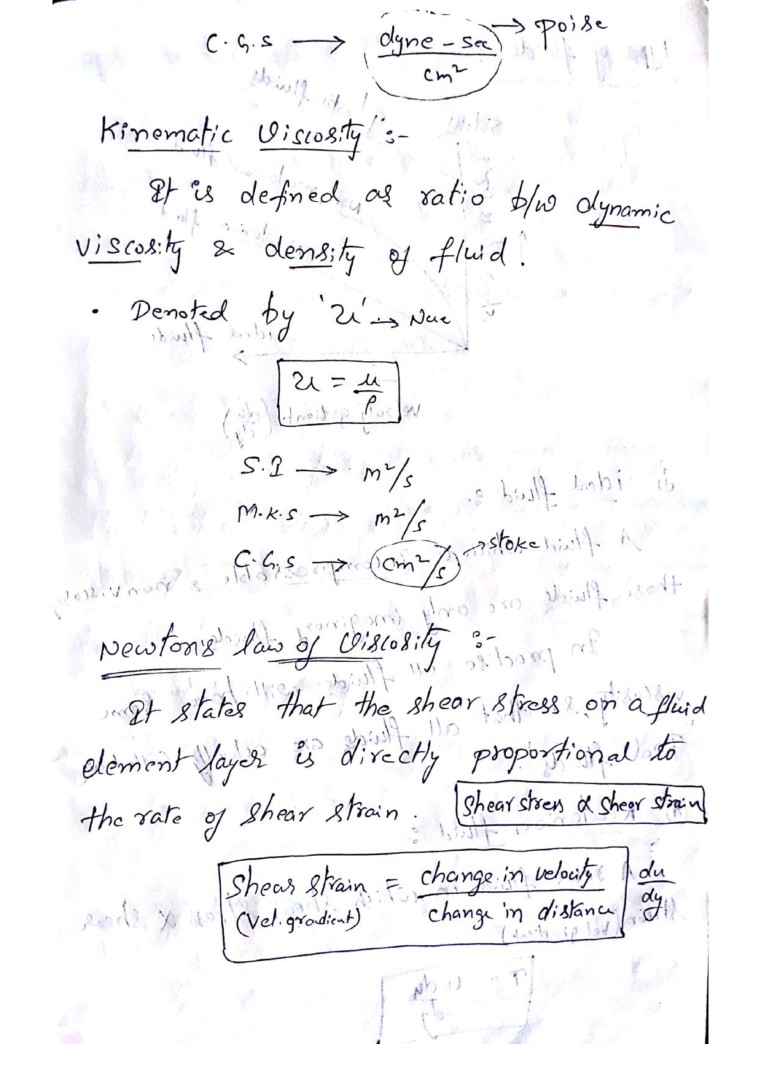 C.G.S → dyne-sec/cm² → poise
Kinematic Viscosity :-
It is defined as ratio b/w dynamic
viscosity & density of fluid.
• Denoted by 'ν' → Nue
ν = μ/ρ
S.I → m²/s
M.K.S → m²/s
C.G.S → cm²/s → stoke
Newton's law of Viscosity :-
It states that the shear stress on a fluid
element layer is directly proportional to
the rate of shear strain. Shear stress ∝ Shear strain
Shear strain = change in velocity/change in distance du/dy
(Vel. gradient)